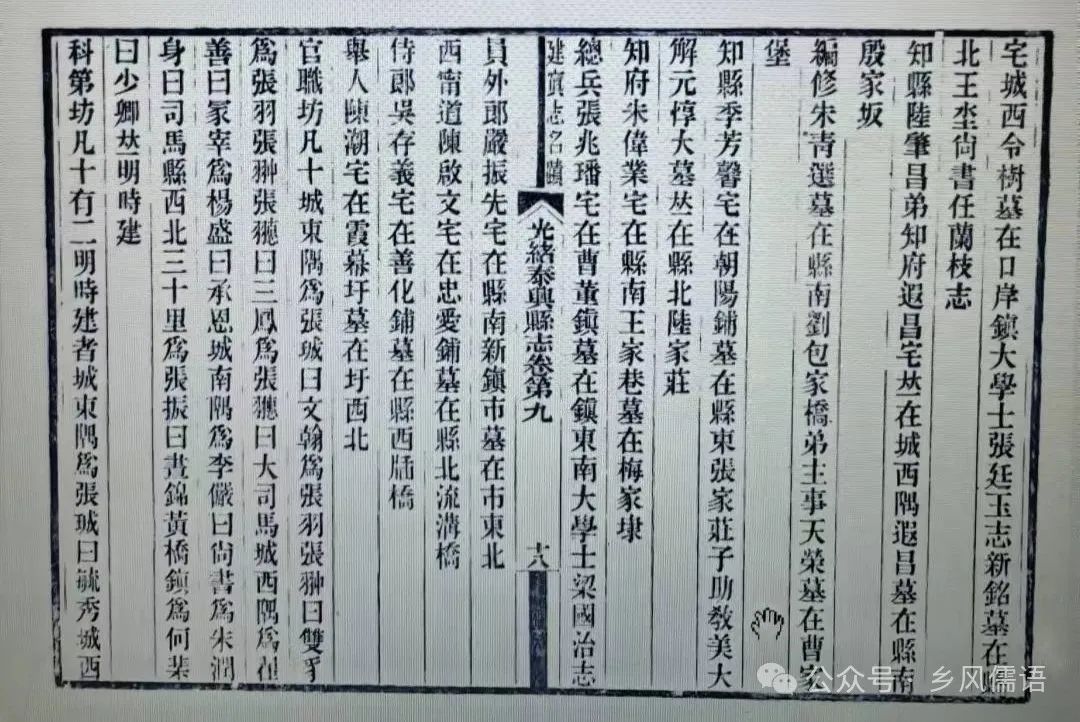 宅城西令樹墓在口岸鎮大學士張廷玉志新銘墓在
北王埊尙書任蘭枝志
知縣陸肇昌弟知府遐昌宅㚘在城西隅遐昌墓在縣南
殷家坂
編修朱靑選墓在縣南劉包家橋弟主事天榮墓在曹家
堡
知縣季芳馨宅在朝陽鋪墓在縣東張家莊子助敎美大
解元惇大墓㚘在縣北陸家莊
知府朱偉業宅在縣南王家巷墓在梅家埭
總兵張兆璠宅在曹董鎮墓在鎮東南大學士梁國治志
建寘志名蹟
光緒泰興縣志卷第九
十八
員外郎嚴振先宅在縣南新鎮市墓在市東北
西甯道陳啟文宅在忠愛鋪墓在縣北流溝橋
侍郎吳存義宅在善化鋪墓在縣西橋
舉人陳潮宅在霞幕圩墓在圩西北
官職坊凡十城東隅爲張珹曰文翰爲張羽張翀曰雙豸
爲張羽張翀張𦒍曰三鳳爲張𦒍曰大司馬城西隅爲
善曰冢宰爲楊盛曰承恩城南隅爲李儼曰尙書爲朱潤
身曰司馬縣西北三十里爲張振曰晝錦黃橋鎮爲何棐
曰少卿㚘明時建
科第坊凡十有二明時建者城東隅爲張珹曰毓秀城西
公众号 乡风儒语